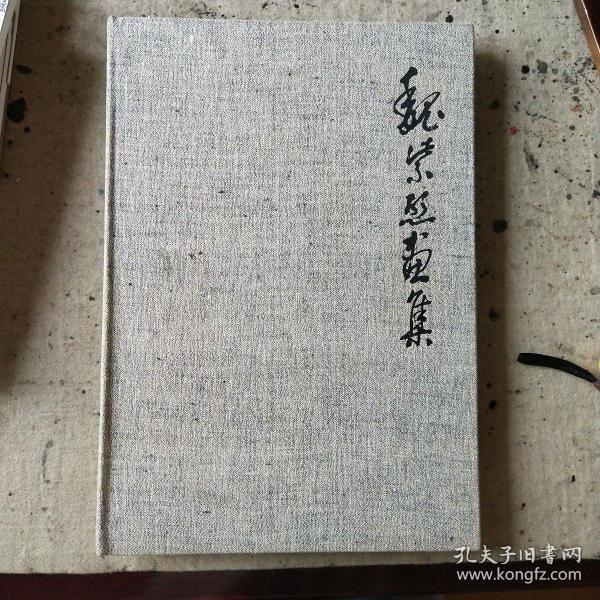 魏紫熙畫集
孔夫子旧書网
www.kongfz.com